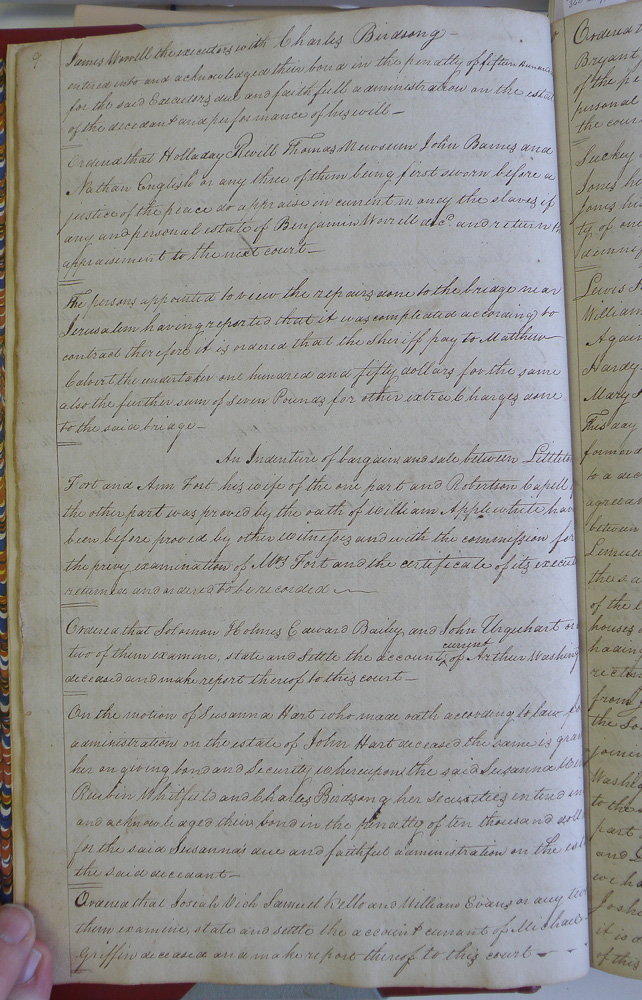 9
James Worrell the executors with Charles Birdsong
entered into and acknowledged their bond in the penalty of fifteen
for the said Executors due and faithfull administration on the estate
of the decedant and performance of his will
Ordered that Holladay Revill Thomas Newsum John Barnes and
Nathan English or any three of them being first sworn before a
justice of the peace do appraise in current money the slaves if
any and personal estate of Benjamin Worrell decd. and return
appraisement to the next court
The persons appointed to view the repairs done to the bridge near
Jerusalem having reported that it was completed according to
contract therefore it is ordered that the Sheriff pay to Matthew
Calvert the undertaker one hundred and fifty dollars for the same
also the further sum of Seven Pounds for other extra Charges done
to the said bridge
An Indenture of bargain and sale between
Fort and Ann Fort his wife of the one part and Robertson Capell
the other part was proved by the oath of William Applewhite
been before proved by other witnesses and with the commission for
the privy examination of Mrs Fort and the certificate of its
returned and ordered to be recorded
Ordered that Solomon Holmes Edward Bailey and John Urquhart or
two of them examine, state and settle the account current of Arthur
deceased and make report thereof to this court
On the motion of Susanna Hart who made oath according to law
administration on the estate of John Hart deceased the same is
her on giving bond and Security whereupon the said Susanna
Reubin Whitfield and Charles Birdsong her Securities entered
and acknowledged their bond in the penalty of ten thousand
for the said Susanna's due and faithful administration on the
the said decedant
Ordered that Josiah Vick Samuel Kello and William Evans or any
them examine, state and settle the account currant of Michael
Griffin deceased and make report thereof to this court
Ordered
Bryant
of the
personal
the cour
Suckey
Jones
Jones
ty of one
Lewis
William
Again
Hardy
Mary
This day
formerly
to a dec
agreeab
between
Lemuel
the sa
of the
houses
from
the
Washing
to the
part
and
we ha
Josh
it is
of this